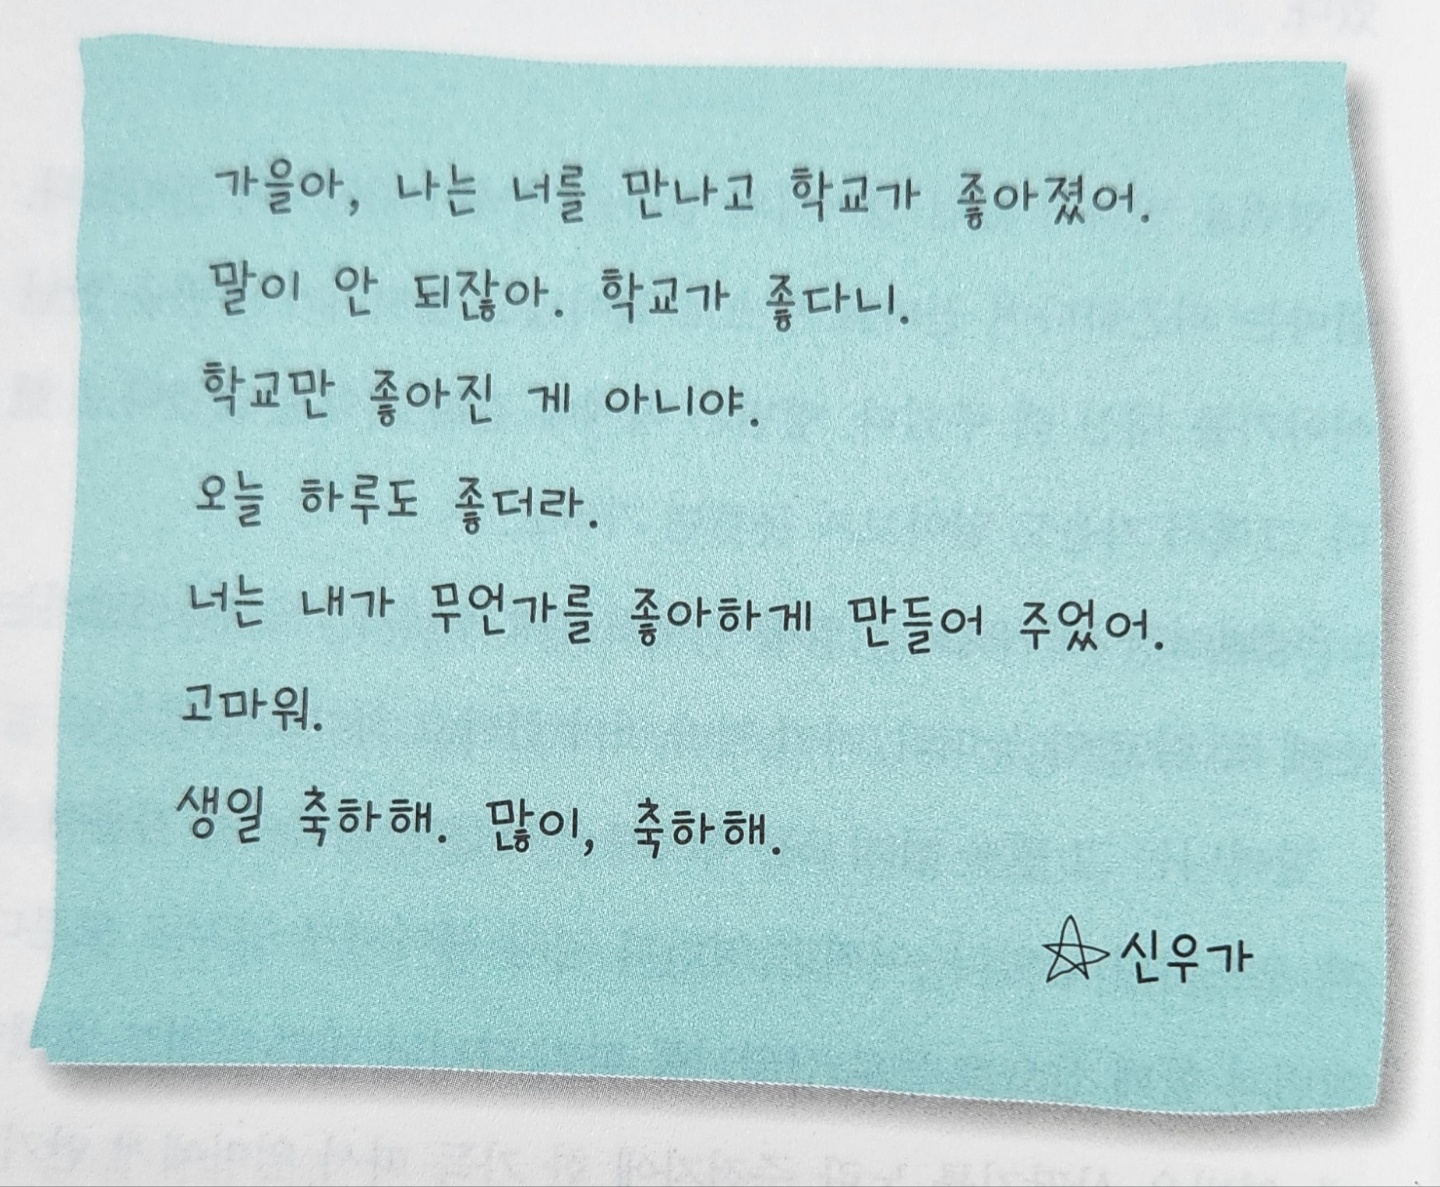 가을아, 나는 너를 만나고 학교가 좋아졌어.
말이 안 되잖아. 학교가 좋다니.
학교만 좋아진 게 아니야.
오늘 하루도 좋더라.
너는 내가 무언가를 좋아하게 만들어 주었어.
고마워.
생일 축하해. 많이, 축하해.
☆신우가